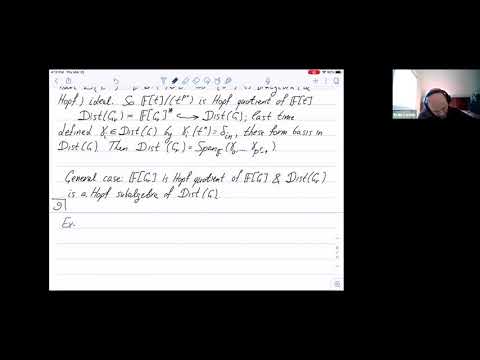 Hopf) ideal. So F[t]/(t^{p^r}) is Hopf quotient of F[t]
Dist(G_r) = F[G_r]* ↪ Dist(G); last time
defined γ_i ∈ Dist(G) by γ_i(t^n) = δ_{in}, these form basis in
Dist(G). Then Dist(G_r) = Span_F(γ_0 ... γ_{p^r-1})
General case: F[G_r] is Hopf quotient of F[G] & Dist(G_r)
is a Hopf subalgebra of Dist(G).
9
Ex.